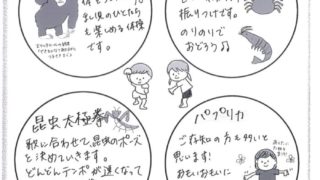 乳児のひとたち
も楽しめる体操
です。
振りつけです。
のりのりで
おどろう♫
昆虫太極拳
歌に合わせて昆虫のポーズ
を決めていきます。
どんどんテンポが速くなって
パプリカ
ご存知の方も多いと
思います!
おもいおもいに